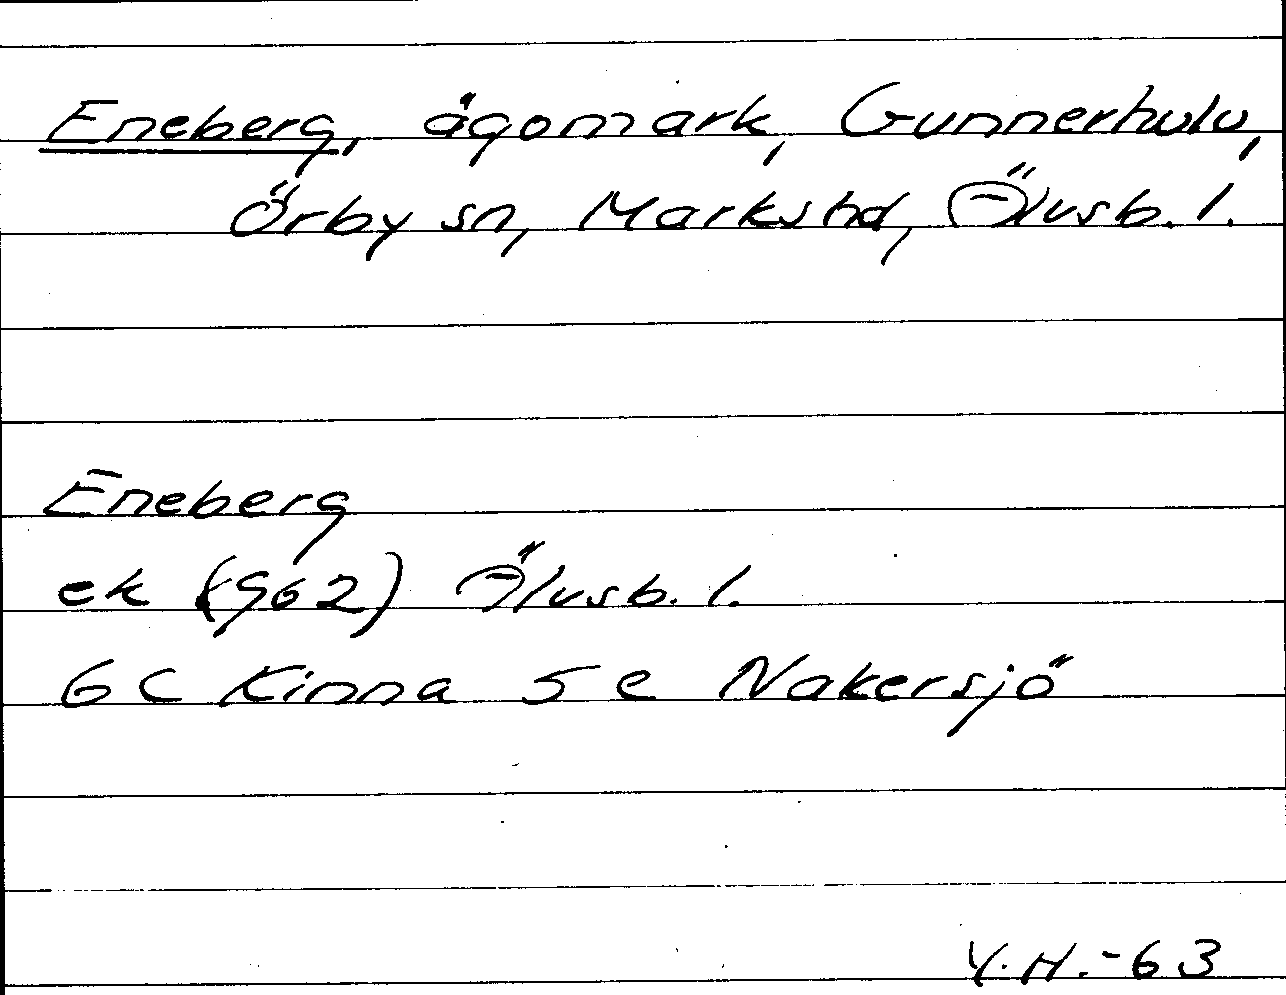 Eneberg, ägomark, Gunnerhulu,
Örby sn, Marks hd, Älvsb. l.
Eneberg
ek (962) Älvsb. l.
6 C Kinna 5 e Nakersjö
Y.H.-63